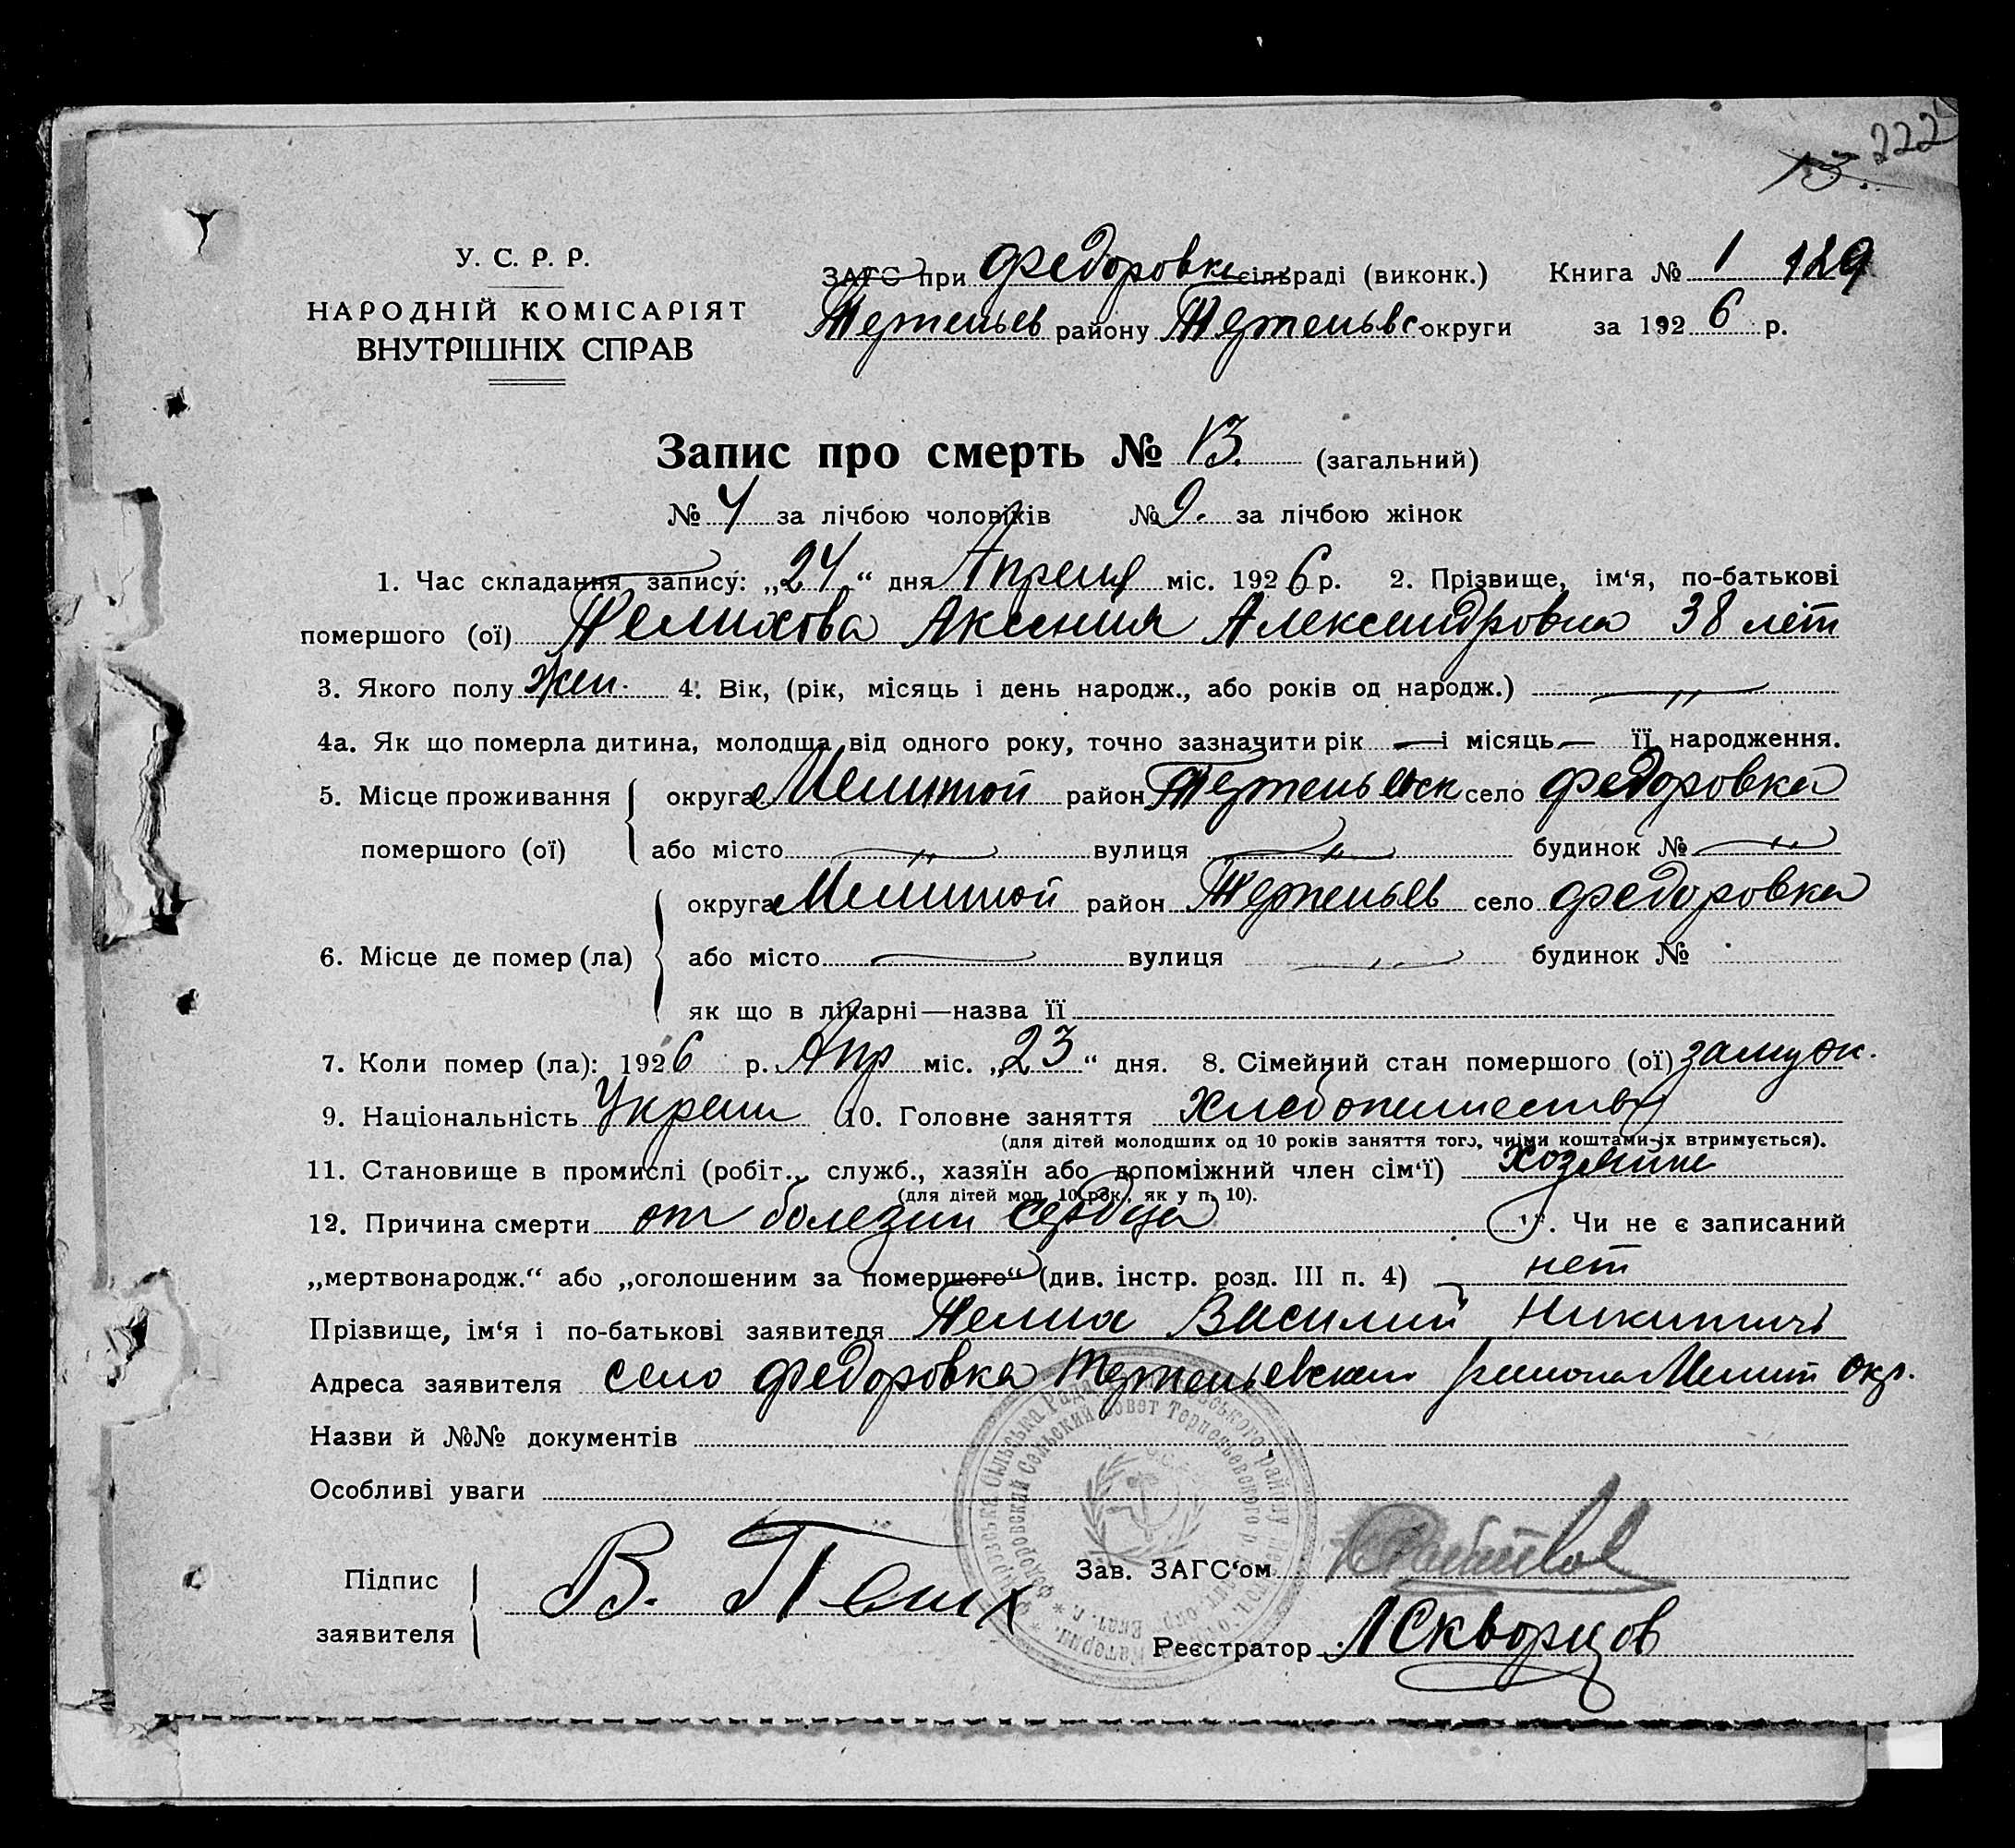 222
13.
У. С. Р. Р.
НАРОДНІЙ КОМІСАРІЯТ
ВНУТРІШНІХ СПРАВ
ЗАГС при Федоровк сільраді (виконк.) Книга № 1 129
району округи за 1926 р.
Запис про смерть № 13. (загальний)
№ 4 за лічбою чоловіків № 9. за лічбою жінок
1. Час складання запису: „24“ дня Апреля міс. 1926 р. 2. Прізвище, ім‘я, по-батькові
помершого (ої) Аксения Александровна 38 лет
3. Якого полу жен. 4. Вік, (рік, місяць і день народж., або років од народж.) — „ —
4а. Як що померла дитина, молодша від одного року, точно зазначити рік — і місяць — її народження.
5. Місце проживання округа Мелитой район село Федоровка
помершого (ої) або місто — „ — вулиця — „ — будинок № — „ —
округа Мелитой район село Федоровка
6. Місце де помер (ла) або місто — вулиця — „ — будинок №
як що в лікарні—назва її
7. Коли помер (ла): 1926 р. Апр міс. „23“ дня. 8. Сімейний стан помершого (ої) замуж.
9. Національність Украин 10. Головне заняття Хлебопашество
(для дітей молодших од 10 років заняття того, чиїми коштами їх втримується).
11. Становище в промислі (робіт., служб., хазяїн або допоміжний член сім‘ї)
(для дітей мол. 10 рок., як у п. 10).
12. Причина смерти от болезни сердца Чи не є записаний
„мертвонародж.“ або „оголошеним за помершого“ (див. інстр. розд. III п. 4) нет
Прізвище, ім‘я і по-батькові заявителя Пелих Василий Никитичь
Адреса заявителя село Федоровка района Мелит окр.
Назви й №№ документів
Особливі уваги
Підпис
заявителя
В. Пелих
Зав. ЗАГС‘ом
Реєстратор Л Скворцов
Сільська Рада
Федоровский Сельский Совет Терпеньевского р